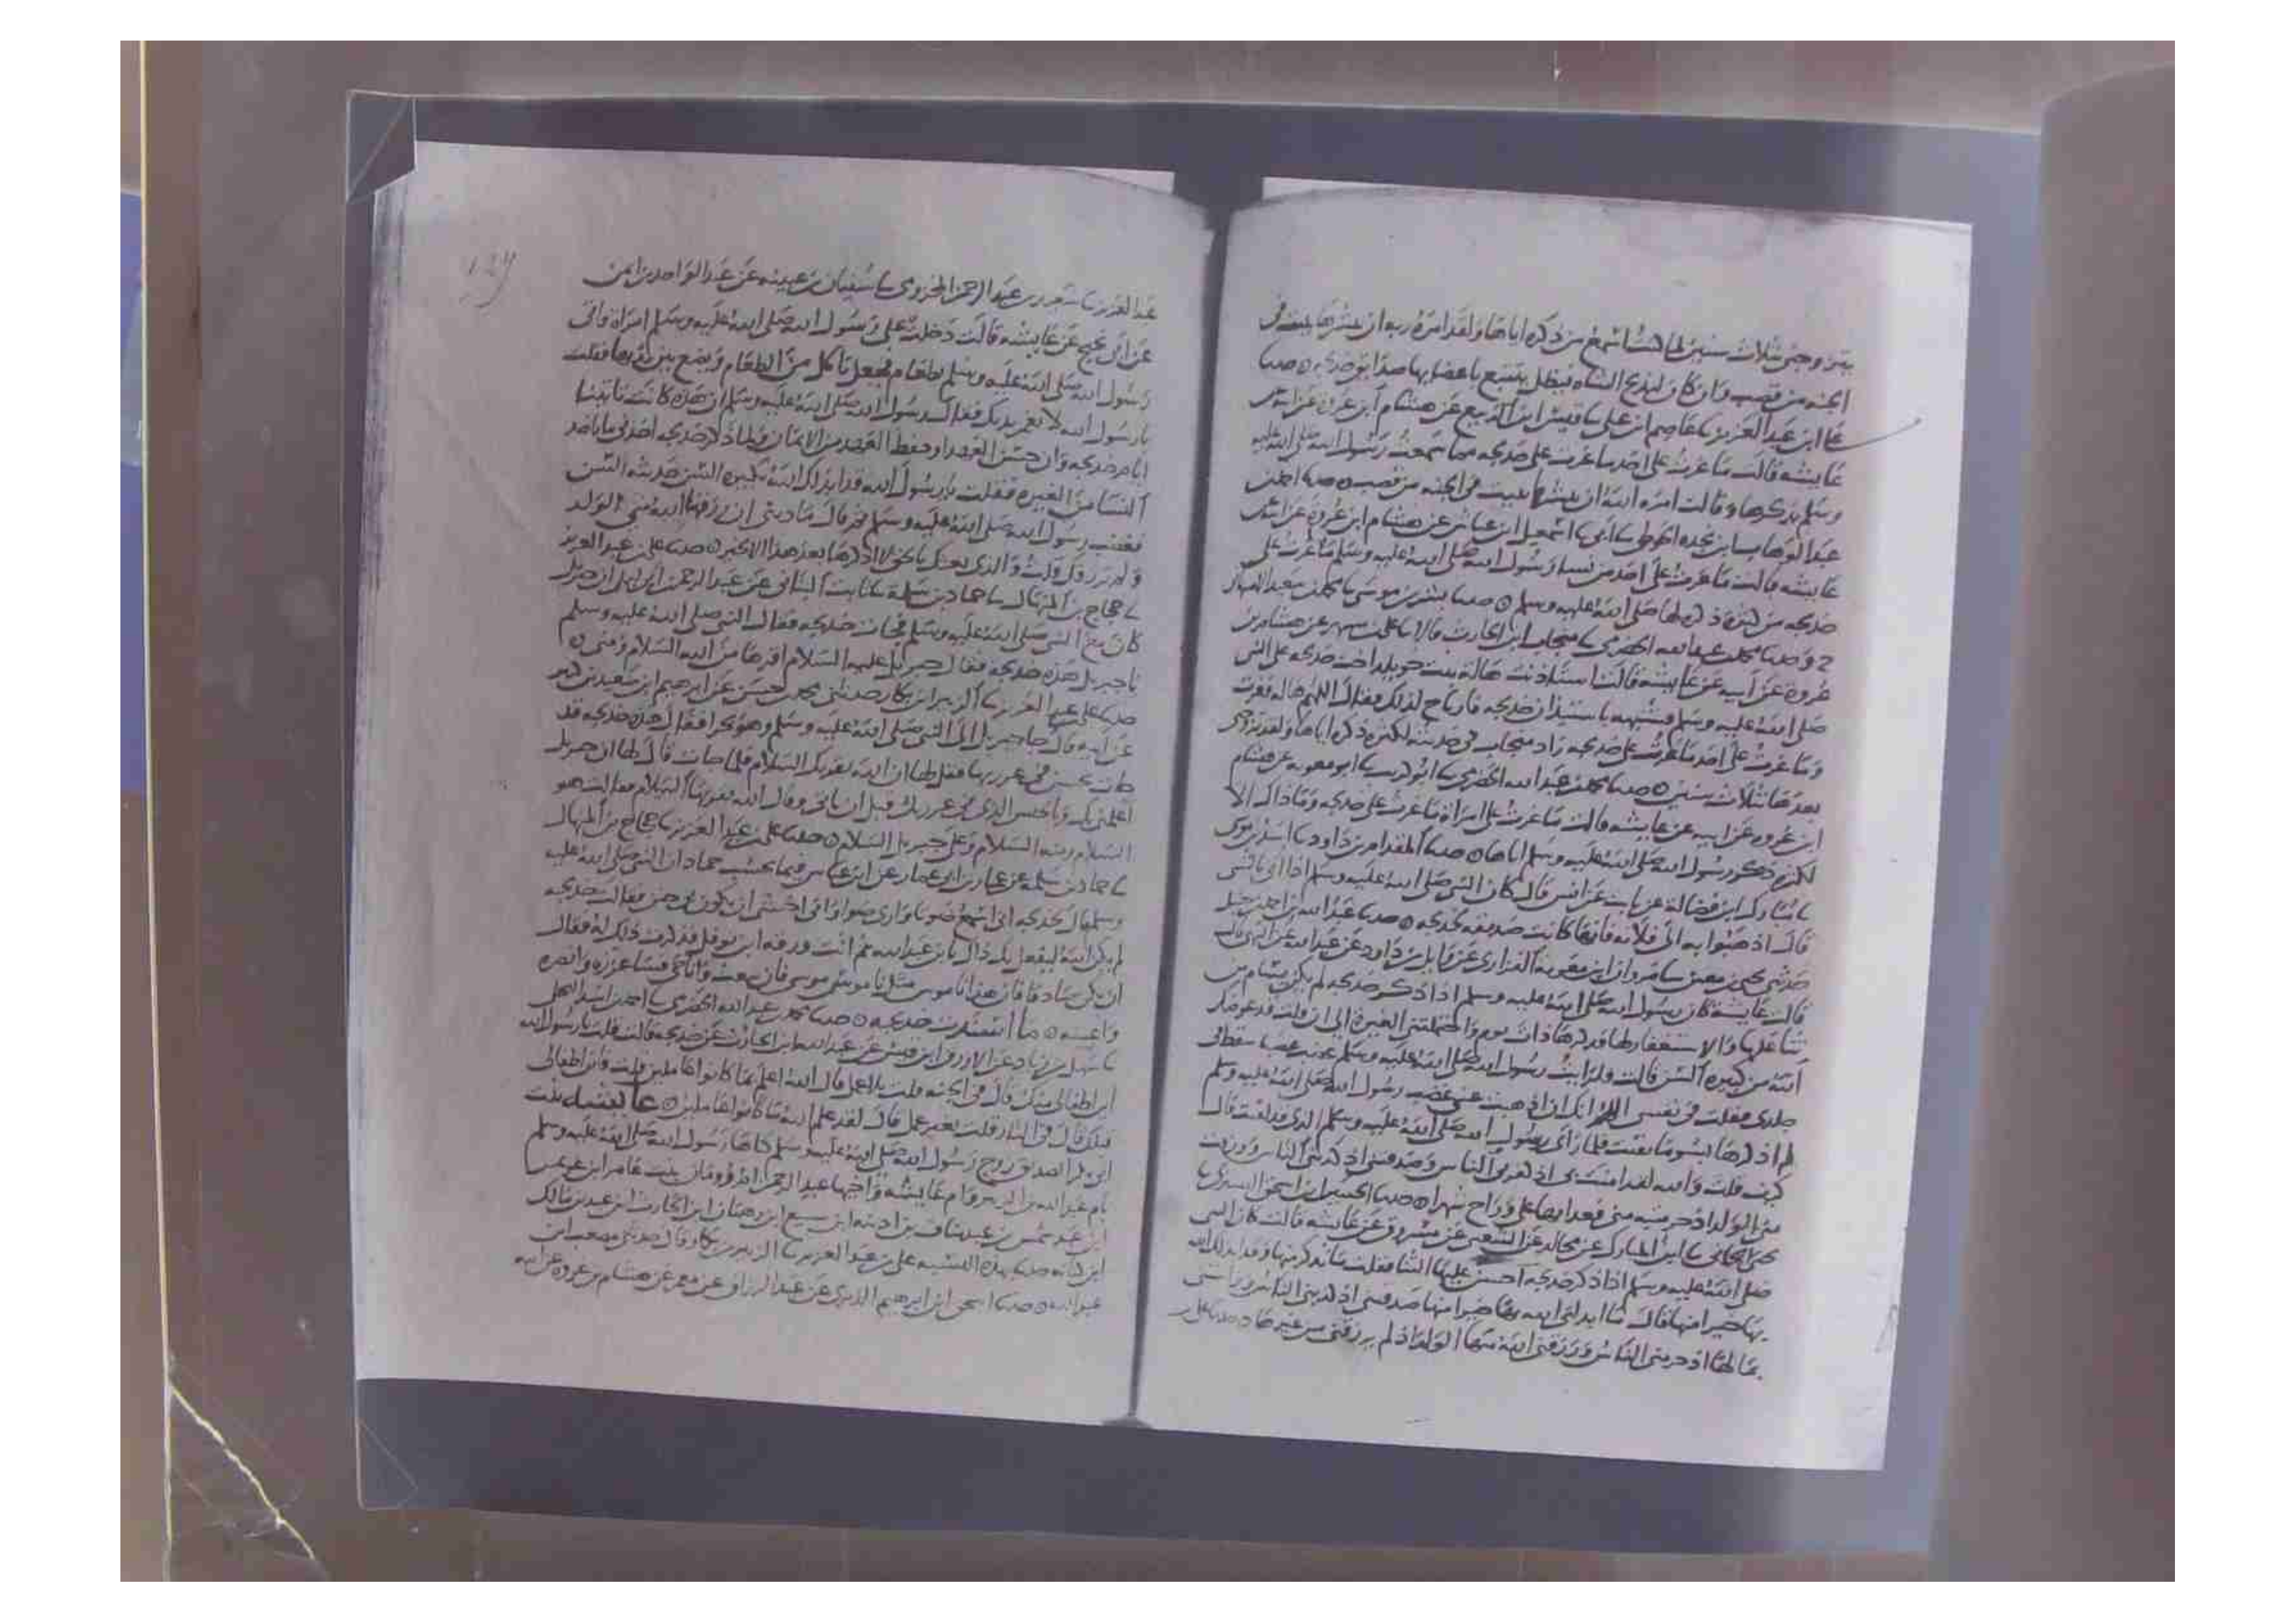 يتزوجني بثلاث سنين لما كنت اسمع من ذكره اياها ولقد امره ربه ان يبشرها ببيت في
الجنة من قصب وان كان ليذبح الشاه فيظل يتتبع باعضايها صدايق خديجه ه حدثنا
على ابن عبد العزيز نا عاصم ابن علي نا قيس ابن الربيع عن هشام ابن عروة عن ابيه عن
عايشه قالت ما غرت على احد ما غرت على خديجه مما سمعت رسول الله صلى الله عليه
وسلم يذكرها وقالت امره الله ان يبشرها ببيت في الجنه من قصب ه حدثنا احمد بن
عبد الوهاب ابن نجده الحوطي نا ابي نا اسمعيل ابن عياش عن هشام ابن عروة عن ابيه عن
عايشه قالت ما غرت على احد من نسا رسول الله صلى الله عليه وسلم ما غرت على
خديجه من كثرة ذكره لها صلى الله عليه وسلم ه حدثنا بشر بن موسى نا محمد بن سعيد
ح وحدثنا محمد بن عبد الله الحضرمي نا منجاب ابن الحارث قالا نا علي بن مسهر عن هشام بن
عروة عن ابيه عن عايشه قالت استاذنت هالة بنت خويلد اخت خديجه على النبي
صلى الله عليه وسلم فشبهه باستيذان خديجه فارتاح لذلك فقال اللهم هاله فغرت
وما غرت على احد ما غرت على خديجه زاد منجاب في حديثه لكثرة ذكره اياها ولقد تزوجني
بعدها بثلاث سنين ه حدثنا محمد بن عبد الله الحضرمي نا ابو كريب نا ابو معوية عن هشام
ابن عروه عن ابيه عن عايشه قالت ما غرت على امراة ما غرت على خديجه وما ذاك الا
لكثرة ذكر رسول الله صلى الله عليه وسلم اياها ه حدثنا المقدام بن داود نا اسد بن موسى
نا مبارك ابن فضالة عن ثابت عن انس قال كان النبي صلى الله عليه وسلم اذا اتي بالشي
قال اذهبوا به الى فلانه فانها كانت صديقه لخديجه ه حدثنا عبد الله ابن احمد بن حنبل
حدثني يحيى بن معين نا مروان ابن معوية الفزاري عن وايل بن داود عن عبد الله عن البهي قال
قالت عايشة كان رسول الله صلى الله عليه وسلم اذا ذكر خديجه لم يكن يسام من
ثنا عليها والاستغفار لها فذكرها ذات يوم واحتملتني الغيرة الى ان قلت قد عوضك
الله من كبيرة السن قالت فرايت رسول الله صلى الله عليه وسلم غضب غضبا سقط في
جلدي فقلت في نفسي اللهم انك ان اذهبت عني غضب رسول الله صلى الله عليه وسلم
لم اذكرها بسو ما بقيت فلما راى رسول الله صلى الله عليه وسلم الذي قد لقيت قال
كيف قلت والله لقد امنت بي اذ كفر بي الناس وصدقتني اذ كذبني الناس ورزقت
مني الولد اذ حرمتيه مني فغدا بها علي وراح شهرا ه حدثنا الحسين ابن اسحق التستري نا
يحيى الحماني نا ابن المبارك عن مجالد عن الشعبي عن مسروق عن عايشه قالت كان النبي
صلى الله عليه وسلم اذا ذكر خديجه احسن عليها الثنا فقلت ما تذكر منها وقد ابدلك الله
بها خيرا منها فقال ما ابدلني الله بها خيرا منها صدقتني اذ كذبني الناس وواستني
بمالها اذ حرمني الناس ورزقني الله منها الولد اذ لم يرزقني من غيرها ه حدثنا علي بن
عبد العزيز نا سعيد بن عبد الرحمن المخزومي نا سفيان بن عيينه عن عبد الواحد بن ايمن
عن ابن نجيح عن عايشه قالت دخلت على رسول الله صلى الله عليه وسلم امراة واتي
رسول الله صلى الله عليه وسلم بطعام فجعل تاكل من الطعام ويضع بين يديها فقلت
يا رسول الله لا تغمر يديك فقال رسول الله صلى الله عليه وسلم ان هذه كانت تاتينا
ايام خديجه وان حسن العهد او حفظ العهد من الايمان ولما ذكر خديجه اخذني ما ياخذ
النسا من الغيرة فقلت يا رسول الله قد ابدلك الله بكبيرة السن حديثه السن
فغضب رسول الله صلى الله عليه وسلم ثم قال ما ذنبي ان رزقها الله مني الولد
ولم يرزقك قلت والذي بعثك بالحق لا اذكرها بعد هذا الا بخير ه حدثنا علي بن عبد العزيز
نا حجاج بن المنهال نا حماد بن سلمة عن ثابت البناني عن عبد الرحمن ابن ابي ليلى ان جبريل
كان مع النبي صلى الله عليه وسلم فجات خديجه فقال النبي صلى الله عليه وسلم
يا جبريل هذه خديجه فقال جبريل عليه السلام اقرها من الله السلام ومني ه
حدثنا علي بن عبد العزيز نا الزبير ابن بكار حدثني محمد بن حسن عن ابرهيم ابن سعيد بن
عن ابيه قال جا جبريل الى النبي صلى الله عليه وسلم وهو بحرا فقال هذه خديجه قد
جات بحيس في غررتها فقل لها ان الله يقريك السلام فلما جات قال لها ان جبريل
اعلمني بك وبالحيس الذي في غررتك قبل ان تاتي وقال الله يقريها السلام فقالت هو
السلام ومنه السلام وعلى جبريل السلام ه حدثنا علي بن عبد العزيز نا حجاج بن المنهال
نا حماد بن سلمه عن عمار بن ابي عمار عن ابن عباس فيما يحسب حماد ان النبي صلى الله عليه
وسلم قال لخديجه اني اسمع صوتا وارى ضوا واني اخشى ان يكون بي جنن فقالت خديجه
لم يكن الله ليفعل بك ذاك يا ابن عبد الله ثم اتت ورقه ابن نوفل فذكرت ذلك له فقال
ان يكن صادقا فان هذا ناموس مثل ناموس موسى فان بعث وانا حي فساعززه وانصره
واعينه ه ما اسندت خديجه ه حدثنا محمد بن عبد الله الحضرمي نا احمد بن اسد البجلي
نا سهل بن زياد عن الازرق ابن قيس عن عبد الله ابن الحارث عن خديجه قالت قلت يا رسول الله
اين اطفالي منك قال في الجنه قلت بلا عمل قال الله اعلم بما كانوا عاملين قلت فاين اطفالي
قبلك قال في النار قلت بغير عمل قال لقد علم الله ما كانوا عاملين ه عايشه بنت
ابي بكر الصديق زوج رسول الله صلى الله عليه وسلم كناها رسول الله صلى الله عليه وسلم
بام عبد الله بن الزبير وام عايشه واخيها عبد الرحمن ام رومان بنت عامر ابن عويمر
ابن عبد شمس بن عبد مناف بن اذينه ابن سبيع ابن دهمان ابن الحارث ابن عبد بن مالك
ابن كنانه حدثنا بهذه النسبه علي بن عبد العزيز نا الزبير بن بكار وقال حدثني مصعب ابن
عبد الله ه حدثنا اسحق ابن ابرهيم الدبري عن عبد الرزاق عن معمر عن هشام بن عروه عن ابيه